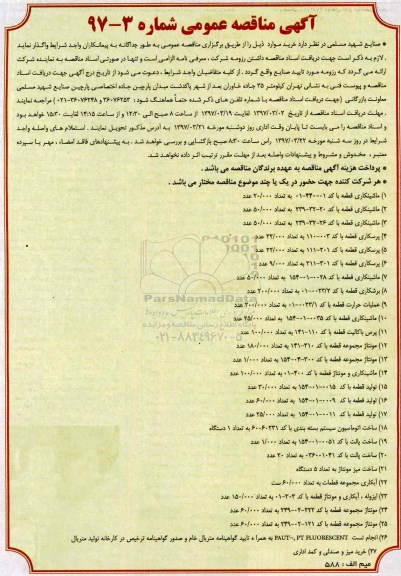 آگهی مناقصه عمومی شماره ۳-۹۷
* صنایع شهید مسلمی در نظر دارد خرید موارد ذیل را از طریق برگزاری مناقصه عمومی به طور جداگانه به پیمانکاران واجد شرایط واگذار نماید
. لازم به ذکر است جهت دریافت اسناد مناقصه داشتن رزومه شرکت ، معرفی نامه الزامی است و تنها در صورتی اسناد مناقصه به نماینده شرکت
ارائه می گردد که رزومه مورد تایید صنایع واقع گردد . از کلیه متقاضیان واجد شرایط ، دعوت می شود از تاریخ درج آگهی جهت دریافت اسناد
مناقصه و پیوست فنی به نشانی تهران کیلومتر ۳۵ جاده خاوران بعد از شهر پاکدشت میدان پارچین جاده اختصاصی پارچین صنایع شهید مسلمی
معاونت بازرگانی (جهت دریافت اسناد مناقصه با شماره تلفن های ذکر شده حتماً هماهنگ شود : ۳۶۰۷۶۲۵۲ و ۳۶۰۷۶۲۴۸-۰۲۱) مراجعه نمایند
. مهلت دریافت اسناد مناقصه از تاریخ ۱۳۹۷/۰۳/۰۲ لغایت ۱۳۹۷/۰۳/۱۹ از ساعت ۸ صبح الی ۱۲:۳۰ و از ساعت ۱۴:۱۵ لغایت ۱۵:۳۰ خواهد بود
و اسناد مناقصه را می بایست تا پایان وقت اداری روز دوشنبه مورخه ۱۳۹۷/۰۳/۲۱ به آدرس مذکور تحویل نمایند . استعلام های واصله واجد
شرایط در روز سه شنبه مورخه ۱۳۹۷/۰۳/۲۲ راس ساعت ۸:۳۰ صبح بازگشایی و بررسی خواهد شد. به پیشنهادهای فاقد امضاء ، مهر یا سپرده
معتبر ، مخدوش و مشروط و پیشنهادات واصله بعد از مهلت مقرر ترتیب اثر داده نخواهد شد.
* پرداخت هزینه آگهی مناقصه به عهده برندگان مناقصه می باشد .
* هر شرکت کننده جهت حضور در یک یا چند موضوع مناقصه مختار می باشد .
۱) ماشینکاری قطعه با کد ۳۴۰۰۰۱-۰۱ به تعداد ۲۰/۰۰۰ عدد
۲) ماشینکاری قطعه با کد ۲۰-۳۲-۲۳۹ به تعداد ۵۰/۰۰۰ عدد
۳) ماشینکاری قطعه با کد ۲۶-۳۲-۲۳۹ به تعداد ۵۰/۰۰۰ عدد
۴) پرسکاری قطعه با کد ۰۰۳-۱۱۰ به تعداد ۲۲/۰۰۰ عدد
۵) پرسکاری قطعه با کد ۱۱۱-۳۰۱ به تعداد ۲۲/۰۰۰ عدد
۶) پرسکاری قطعه با کد ۲۱۱-۳۰۱ به تعداد ۹/۰۰۰ عدد
۷) ماشینکاری قطعه با کد ۰۰۲۸-۰۱-۱۵۴ به تعداد ۵۰/۰۰۰ عدد
۸) برشکاری قطعه با کد ۰۲۳/۲-۰۱ به تعداد ۲۰۰/۰۰۰ عدد
۹) عملیات حرارت قطعه با کد ۰۲۳/۱-۰۱ به تعداد ۲۰۰/۰۰۰ عدد
۱۰) ماشینکاری قطعه با کد ۰۰۳۵-۰۱-۱۵۴ به تعداد ۲۵/۰۰۰ عدد
۱۱) پرس باکالیت قطعه با کد ۱۴۱-۱۱۰ به تعداد ۱۰۰/۰۰۰ عدد
۱۲) مونتاژ مجموعه قطعه با کد ۲۱۰-۱۴۱ به تعداد ۱۸۰/۰۰۰ عدد
۱۳) مونتاژ مجموعه قطعه با کد ۳۰۰-۰۴-۱۵۴ به تعداد ۱/۰۰۰ عدد
۱۴) ماشینکاری و مونتاژ قطعه با کد ۴۰۰-۰۱ به تعداد ۱۰۰/۰۰۰ عدد
۱۵) تولید قطعه با کد ۰۰۱۵-۰۱-۱۵۴ به تعداد ۳۰/۰۰۰ عدد
۱۶) تولید قطعه با کد ۰۰۰۹-۰۱-۱۵۴ به تعداد ۶۰/۰۰۰ عدد
۱۷) تولید قطعه با کد ۰۰۱۱-۰۱-۱۵۴ به تعداد ۲۵/۰۰۰ عدد
۱۸) ساخت اتوماسیون سیستم بسته بندی با کد ۶۰۶۰۲۳۱ به تعداد ۱ دستگاه
۱۹) ساخت پالت با کد ۰۰۵۱-۰۱-۱۵۴ به تعداد ۱/۰۰۰ عدد
۲۰) ساخت پالت با کد ۰۳۶۰۰۱۰۴۱ به تعداد ۳۰ عدد
۲۱) ساخت میز مونتاژ به تعداد ۵ دستگاه
۲۲) آبکاری مجموعه قطعات به تعداد ۶۰/۰۰۰ ست
۲۳) ایزوله ، آبکاری و مونتاژ قطعه با کد ۳۰۲-۰۱ به تعداد ۱۵۰/۰۰۰ عدد
۲۴) مونتاژ مجموعه قطعه با کد ۲۳۲-۰۲-۲۴۹ به تعداد ۶۰/۰۰۰ عدد
۲۵) مونتاژ مجموعه قطعه با کد ۱۲۱-۰۲-۲۴۹ به تعداد ۶۰/۰۰۰ عدد
۲۶) انجام تست PAUT-, PT FLUORESCENT به همراه تایید گواهینامه متریال خام و صدور گواهینامه ترخیص در کارخانه تولید متریال
۲۷) خرید میز و صندلی و کمد اداری
میم الف : ۵۸۸
ParsNamadData
۰۲۱-۸۸۳۴۹۶۷۰-۵